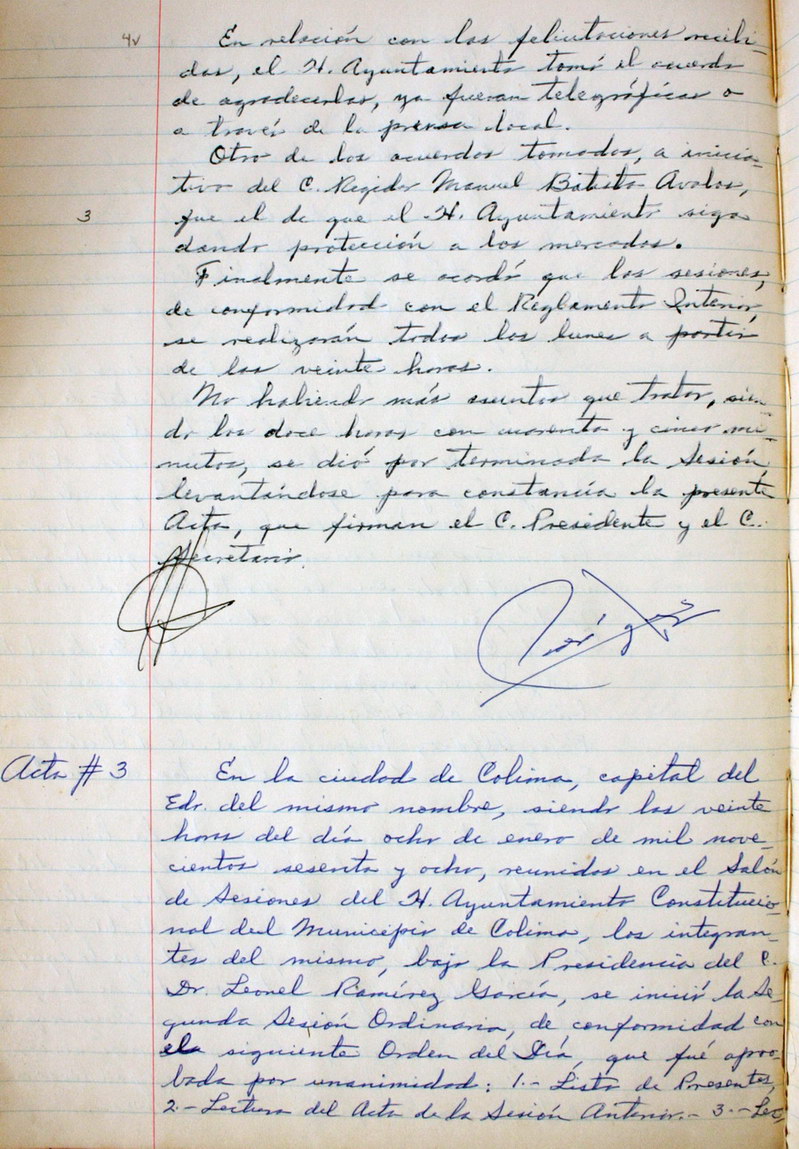 4v
En relación con las felicitaciones recibi-
das, el H. Ayuntamiento tomó el acuerdo
de agradecerlas, ya fueran telegráficas o
a través de la prensa local.
Otro de los acuerdos tomados, a inicia-
tiva del C. Regidor Manuel Batista Avalos,
3
fue el de que el H. Ayuntamiento siga
dando protección a los mercados.
Finalmente se acordó que las sesiones,
de conformidad con el Reglamento Interior,
se realizarán todos los lunes a partir
de las veinte horas.
No habiendo más asuntos que tratar, sien-
do las doce horas con cuarenta y cinco mi-
nutos, se dió por terminada la Sesión,
levantándose para constancia la presente
Acta, que firman el C. Presidente y el C.
Secretario.
Acta # 3
En la ciudad de Colima, capital del
Edo. del mismo nombre, siendo las veinte
horas del día ocho de enero de mil nove-
cientos sesenta y ocho, reunidos en el Salón
de Sesiones del H. Ayuntamiento Constitucio-
nal del Municipio de Colima, los integran-
tes del mismo, bajo la Presidencia del C.
Dr. Leonel Ramírez García, se inició la Se-
gunda Sesión Ordinaria, de conformidad con
el siguiente Orden del Día, que fué apro-
bada por unanimidad: 1.- Lista de Presentes,
2.- Lectura del Acta de la Sesión Anterior.- 3.- Lec-